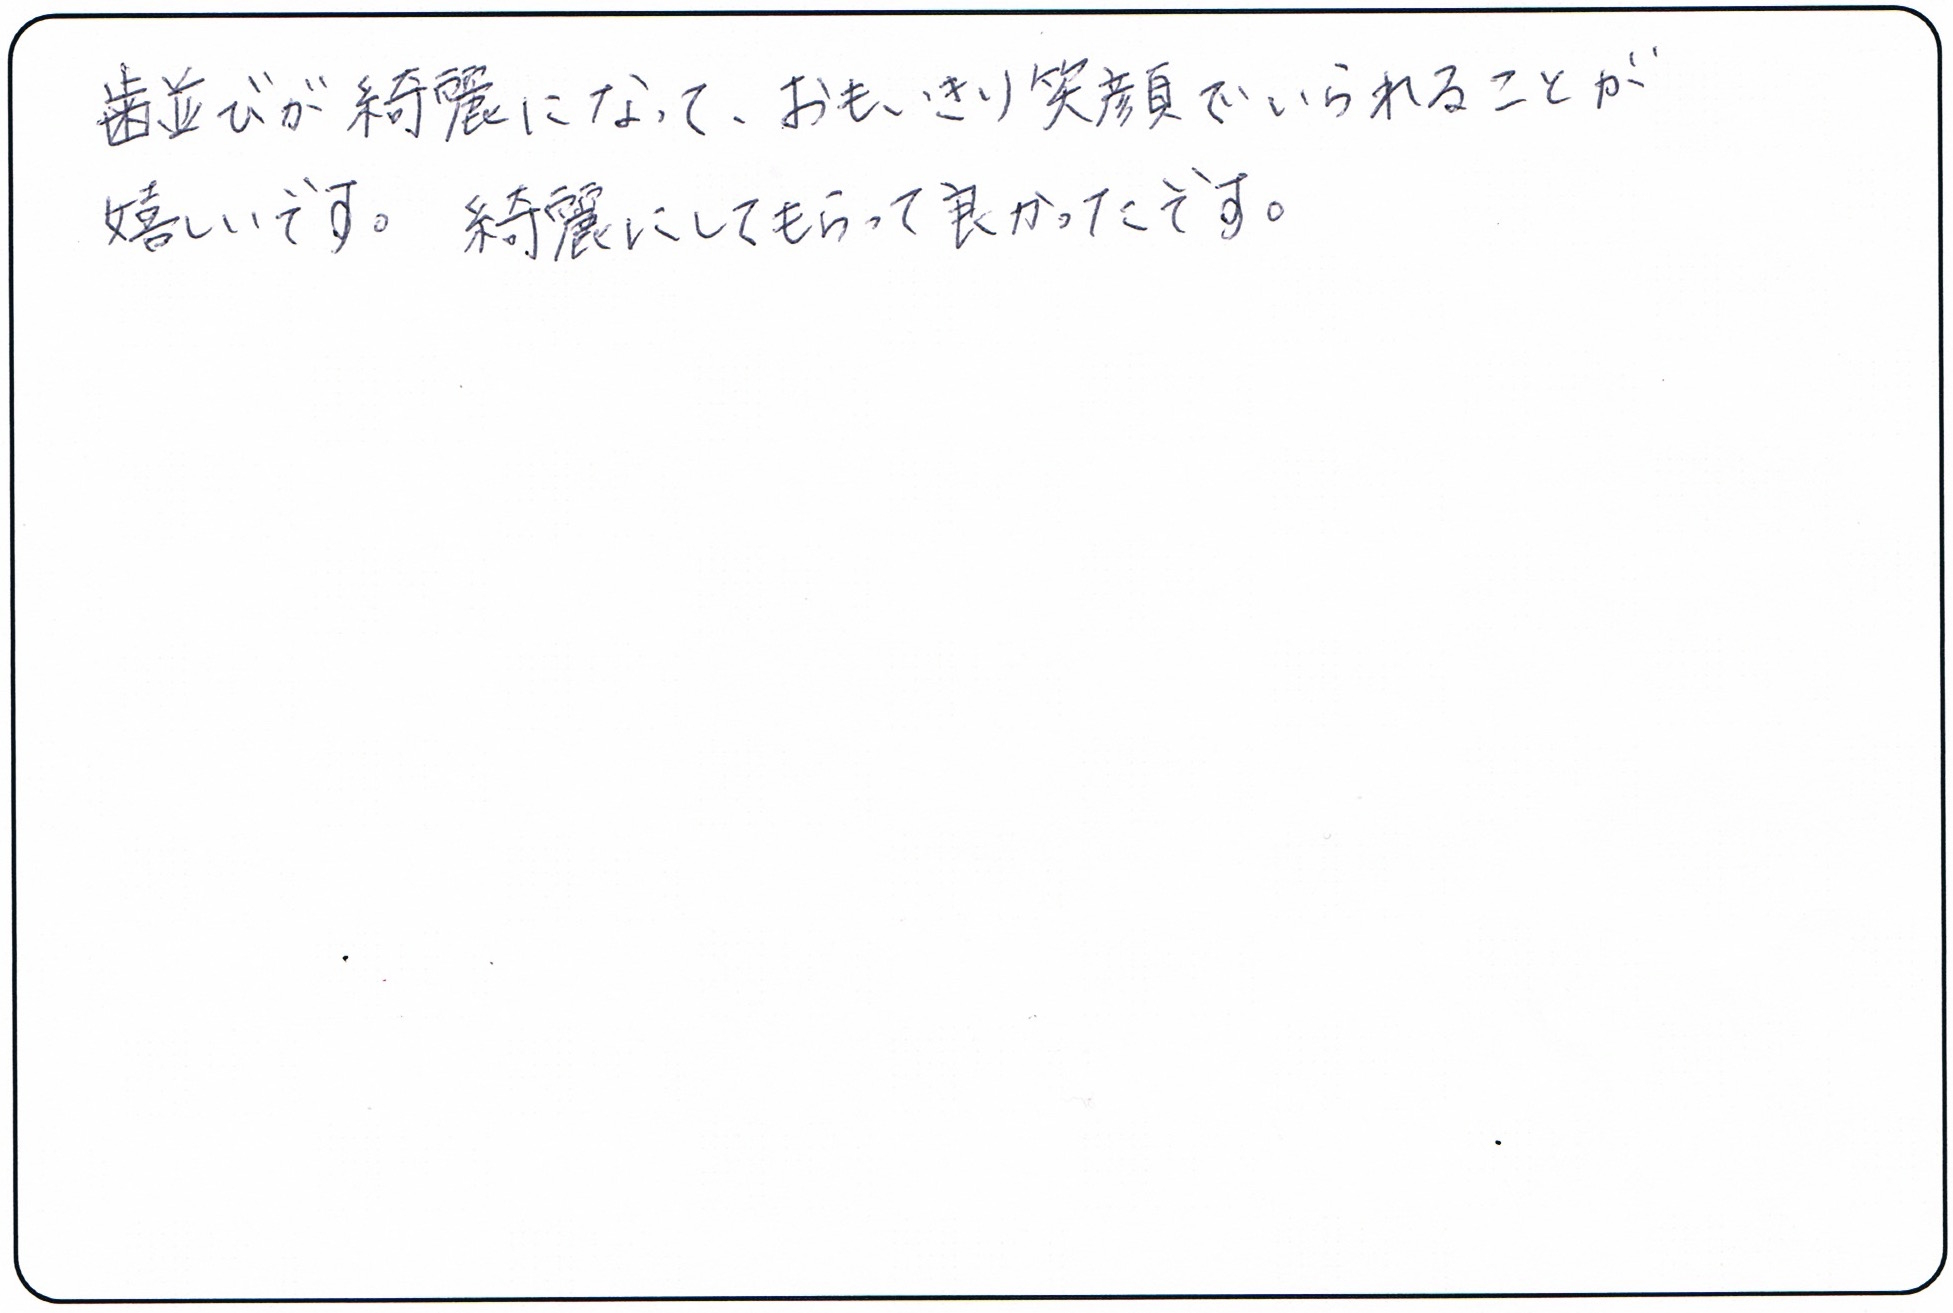 歯並びが綺麗になって、おもいきり笑顔でいられることが
嬉しいです。 綺麗にしてもらって良かったです。